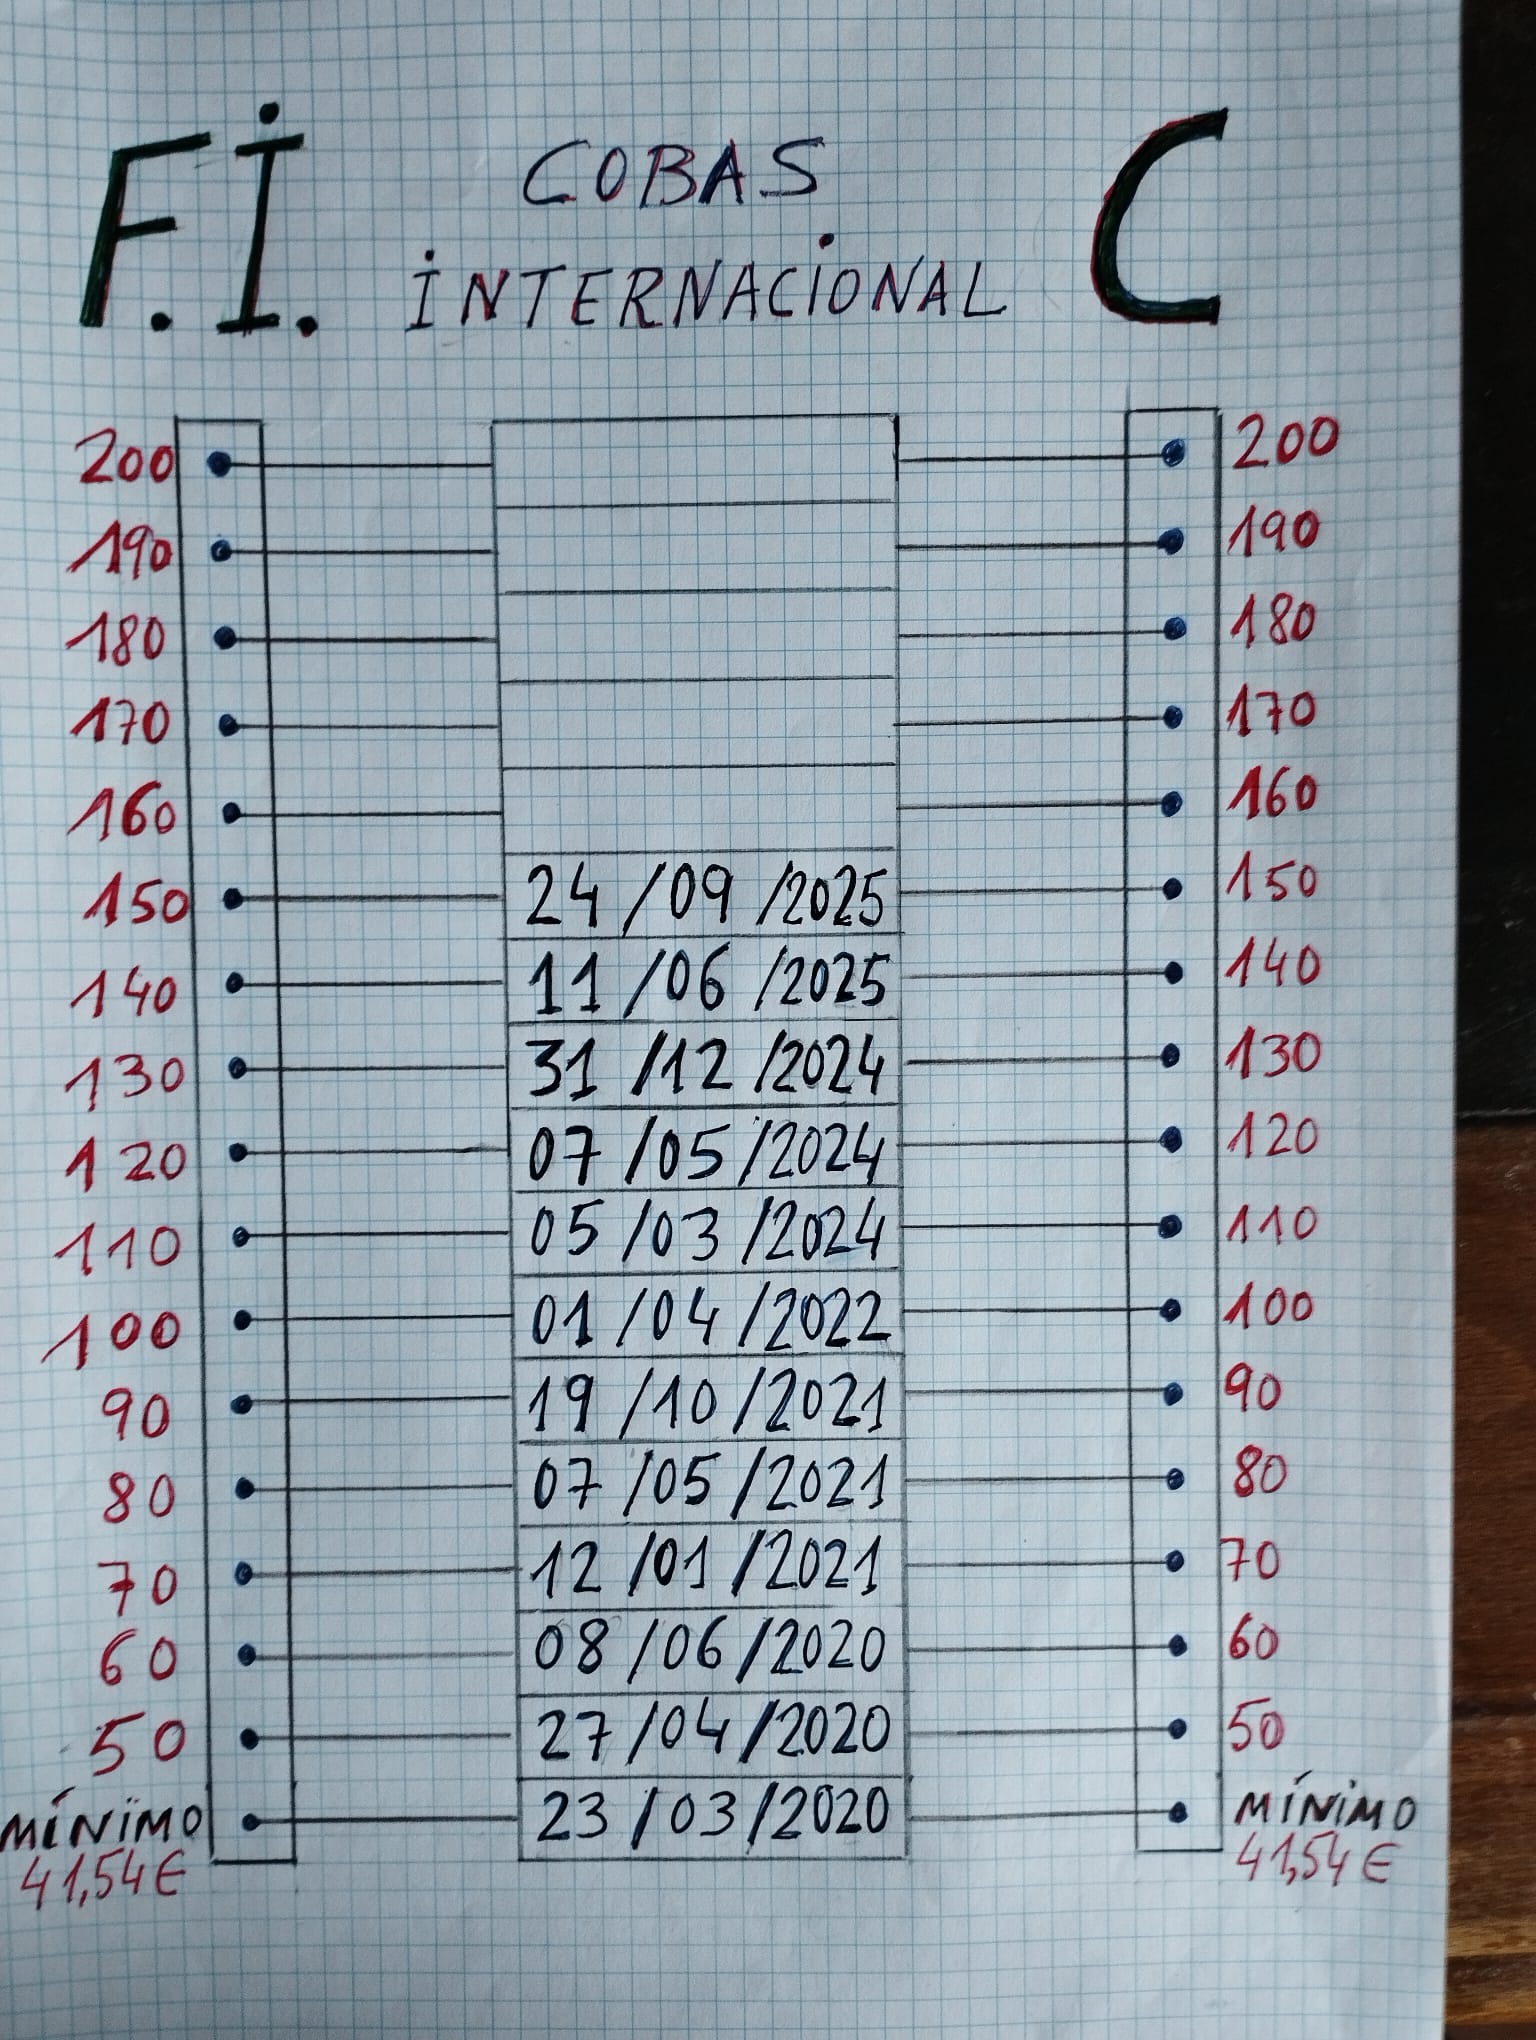 F.I. COBAS C
INTERNACIONAL
200 200
190 190
180 180
170 170
160 160
150 24/09/2025 150
140 11/06/2025 140
130 31/12/2024 130
120 07/05/2024 120
110 05/03/2024 110
100 01/04/2022 100
90 19/10/2021 90
80 07/05/2021 80
70 12/01/2021 70
60 08/06/2020 60
50 27/04/2020 50
MÍNIMO 23/03/2020 MÍNIMO
41,54€ 41,54€